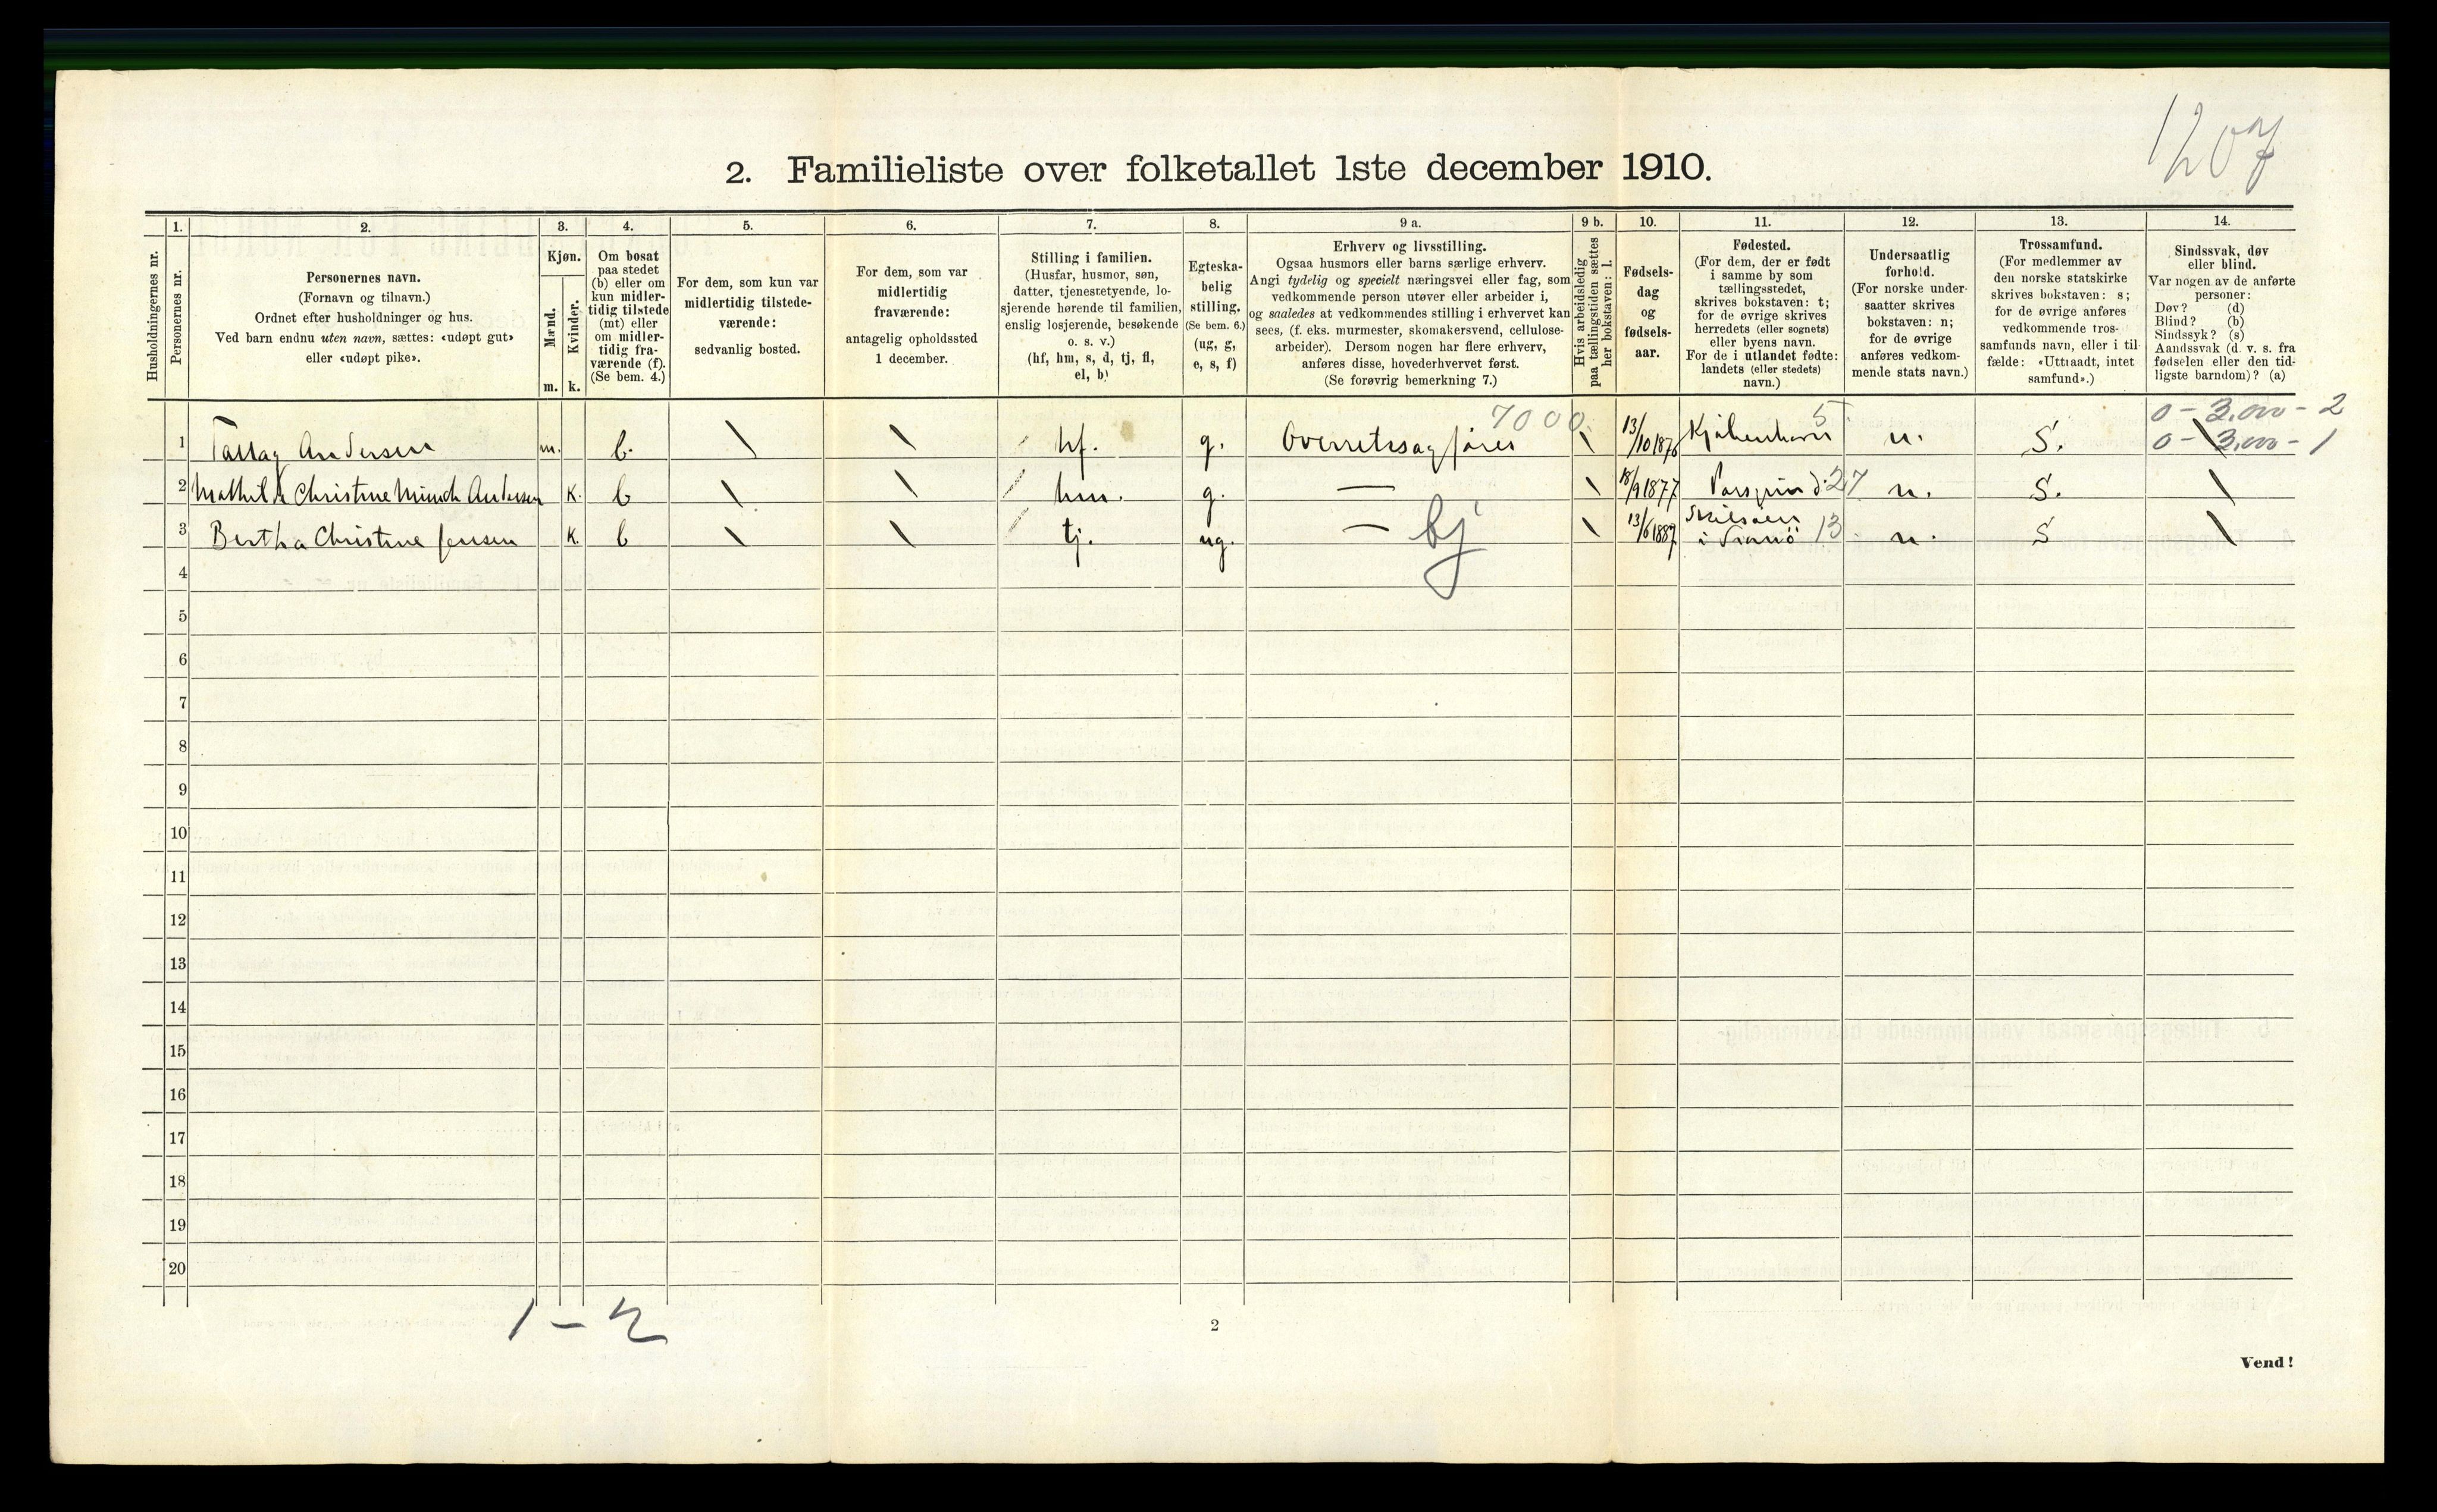 1207
2. Familieliste over folketallet 1ste december 1910.
1. 2. 3. 4. 5. 6. 7. 8. 9 a. 9 b. 10. 11. 12. 13. 14.
Husholdningernes nr.
Personernes nr.
Personernes navn.
(Fornavn og tilnavn.)
Ordnet efter husholdninger og hus.
Ved barn endnu uten navn, sættes: «udøpt gut»
eller «udøpt pike».
Kjøn.
Mænd.
Kvinder.
m. k.
Om bosat
paa stedet
(b) eller om
kun midler-
tidig tilstede
(mt) eller
om midler-
tidig fra-
værende (f).
(Se bem. 4.)
For dem, som kun var
midlertidig tilstede-
værende:
sedvanlig bosted.
For dem, som var
midlertidig
fraværende:
antagelig opholdssted
1 december.
Stilling i familien.
(Husfar, husmor, søn,
datter, tjenestetyende, lo-
sjerende hørende til familien,
enslig losjerende, besøkende
o. s. v.)
(hf, hm, s, d, tj, fl,
el, b)
Egteska-
belig
stilling.
(Se bem. 6.)
(ug, g,
e, s, f)
Erhverv og livsstilling.
Ogsaa husmors eller barns særlige erhverv.
Angi tydelig og specielt næringsvei eller fag, som
vedkommende person utøver eller arbeider i,
og saaledes at vedkommendes stilling i erhvervet kan
sees, (f. eks. murmester, skomakersvend, cellulose-
arbeider). Dersom nogen har flere erhverv,
anføres disse, hovederhvervet først.
(Se forøvrig bemerkning 7.)
Hvis arbeidsledig
paa tællingstiden sættes
her bokstaven: l.
Fødsels-
dag
og
fødsels-
aar.
Fødested.
(For dem, der er født
i samme by som
tællingsstedet,
skrives bokstaven: t;
for de øvrige skrives
herredets (eller sognets)
eller byens navn.
For de i utlandet fødte:
landets (eller stedets)
navn.)
Undersaatlig
forhold.
(For norske under-
saatter skrives
bokstaven: n;
for de øvrige
anføres vedkom-
mende stats navn.)
Trossamfund.
(For medlemmer av
den norske statskirke
skrives bokstaven: s;
for de øvrige anføres
vedkommende tros-
samfunds navn, eller i til-
fælde: «Uttraadt, intet
samfund».)
Sindssvak, døv
eller blind.
Var nogen av de anførte
personer:
Døv? (d)
Blind? (b)
Sindssyk? (s)
Aandssvak (d. v. s. fra
fødselen eller den tid-
ligste barndom)? (a)
7000. 5 0 - 3.000 - 2
1 Tallag Andersen m. b. hf. g. Overretssagfører 13/10 1876 Kjøbenhavn n. S. 0 - 3.000 - 1
2 Mathilde Christine Münch Andersen K. b hm. g. — 18/9 1877 Porsgrund. 27 n. S.
3 Bertha Christine Jensen K. b tj. ug. — bj 13/6 1887 i Tromø 13 n. S
4
5
6
7
8
9
10
11
12
13
14
15
16
17
18
19
20
1 - 2
2
Vend!